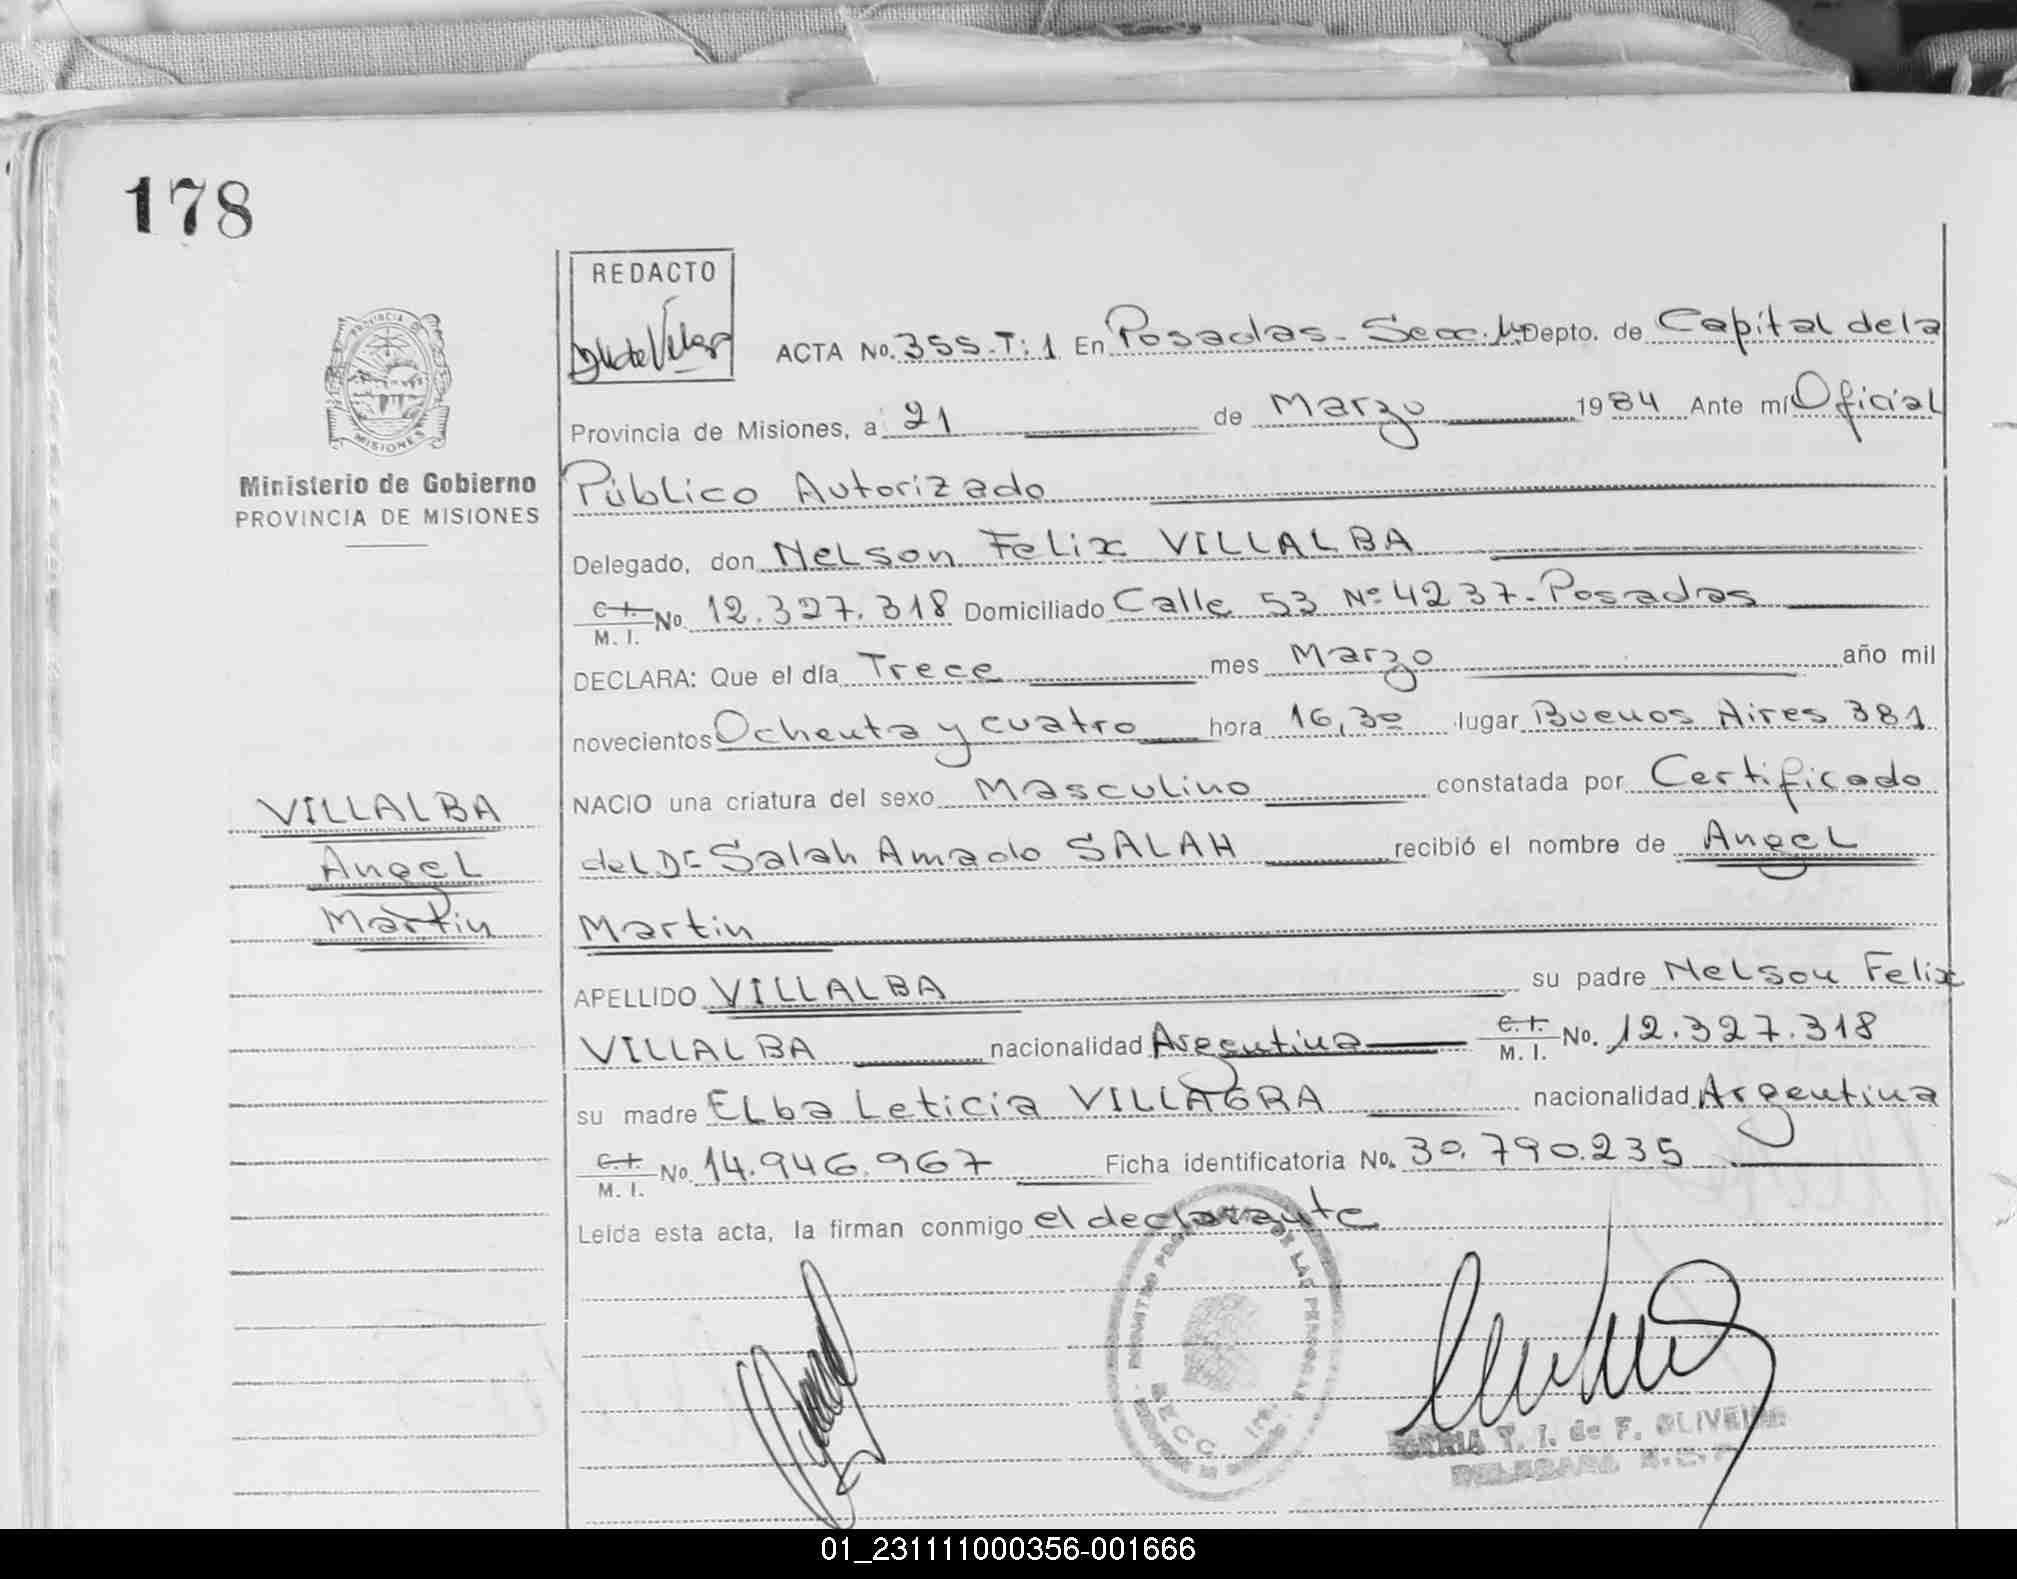 178
REDACTO
PROVINCIA DE
MISIONES
ACTA No. 355-T:1 En Posadas - Secc. Depto. de Capital de la
Provincia de Misiones, a 21 de Marzo 1984 Ante mí Oficial
Ministerio de Gobierno
PROVINCIA DE MISIONES
Público Autorizado
Delegado, don Nelson Felix VILLALBA
C.I. M.I. No. 12.327.318 Domiciliado Calle 53 Nº 4237 - Posadas
DECLARA: Que el día Trece mes Marzo año mil
novecientos Ochenta y cuatro hora 16,30 lugar Buenos Aires 381
NACIO una criatura del sexo Masculino constatada por Certificado
del Dr Salah Amado SALAH recibió el nombre de Angel
Martin
VILLALBA
Angel
Martin
APELLIDO VILLALBA su padre Nelson Felix
VILLALBA nacionalidad Argentina C.I. M.I. No. 12.327.318
su madre Elba Leticia VILLAGRA nacionalidad Argentina
C.I. M.I. No. 14.946.967 Ficha identificatoria No. 30.790.235
Leída esta acta, la firman conmigo el declarante
DE LAS PERSONAS
SECC.
T. I. de F. OLIVEIRA
01_231111000356-001666